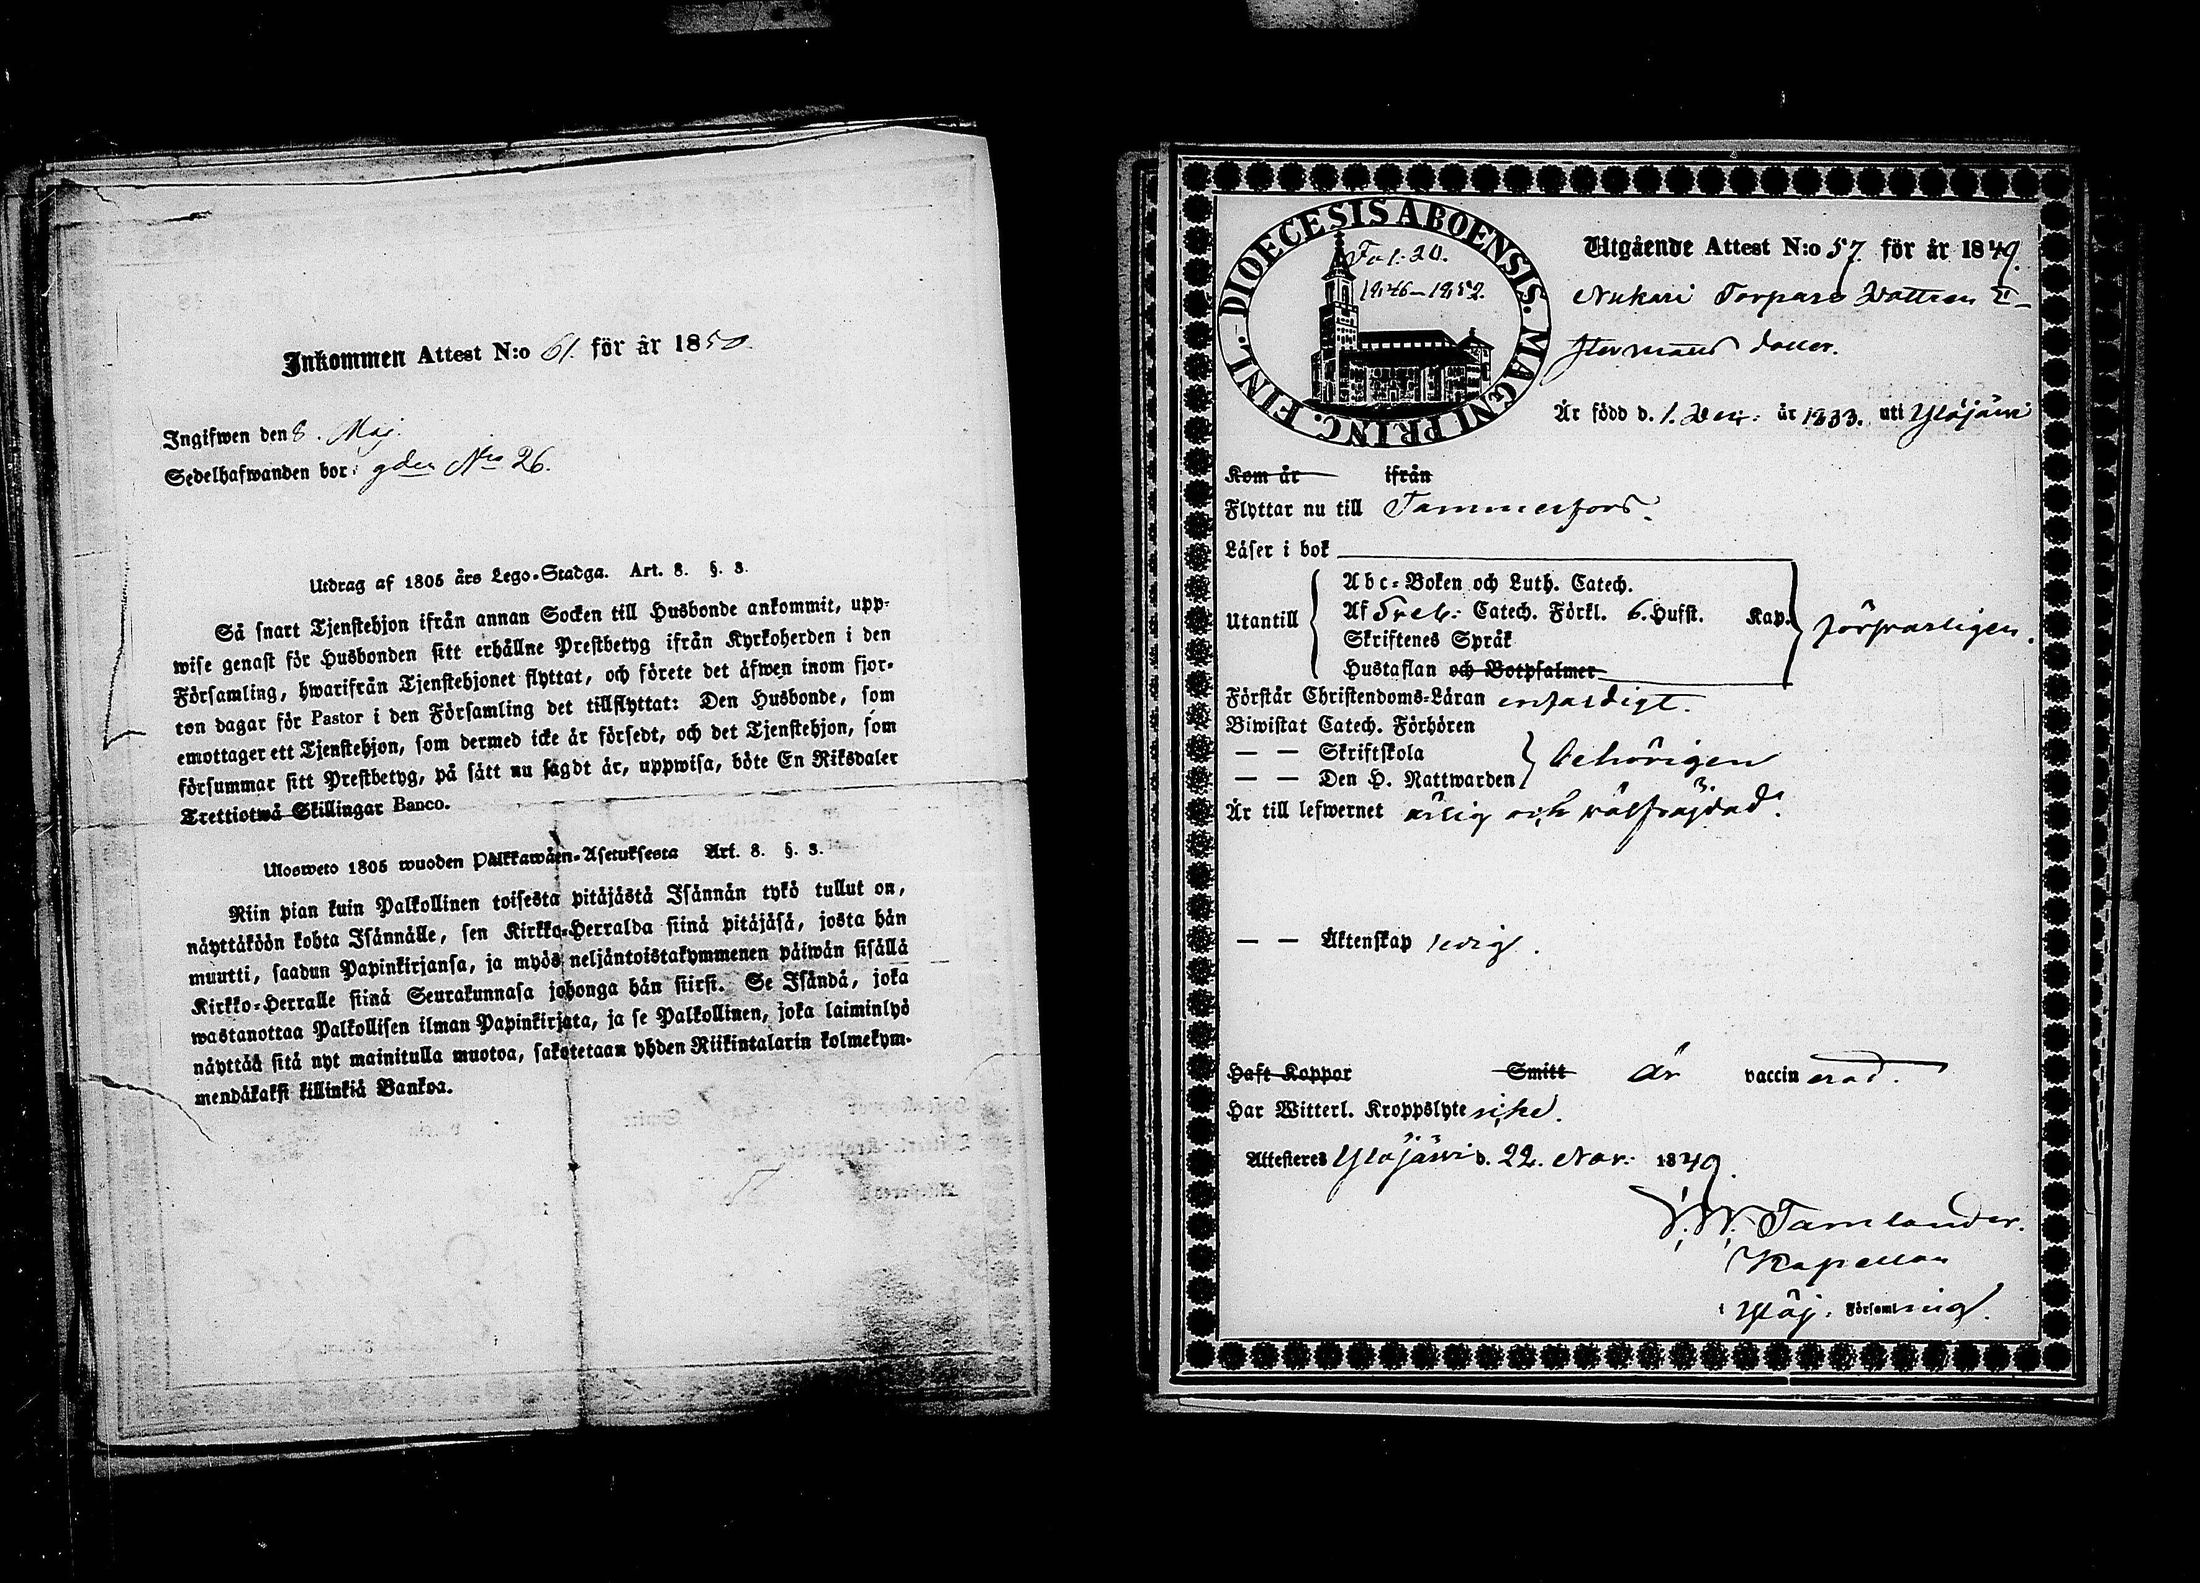 Inkommen Attest N:o 61. för år 1850.
Ingifwen den 8. Maj.
Sedelhafwanden bor: gden N:o 26.
Utdrag af 1805 års Lego-Stadga. Art. 8. §. 3.
Så snart Tjenstehjon ifrån annan Socken till Husbonde ankommit, upp-
wise genast för Husbonden sitt erhållne Prestbetyg ifrån Kyrkoherden i den
Församling, hwarifrån Tjenstehjonet flyttat, och förete det äfwen inom fjor-
ton dagar för Pastor i den Församling det tillflyttat: Den Husbonde, som
emottager ett Tjenstehjon, som dermed icke är försedt, och det Tjenstehjon, som
försummar sitt Prestbetyg, på sätt nu sagdt är, uppwisa, böte En Riksdaler
Trettiotwå Skillingar Banco.
Ulosweto 1805 wuoden Palkkawäen-Asetuksesta Art. 8. §. 3.
Niin pian kuin Palkollinen toisesta pitäjästä Isännän tykö tullut on,
näyttäköön kohta Isännälle, sen Kirkko-Herralda siinä pitäjäsä, josta hän
muutti, saadun Papinkirjansa, ja myös neljäntoistakymmenen päiwän sisällä
Kirkko-Herralle siinä Seurakunnasa johonga hän siirsi. Se Isändä, joka
wastanottaa Palkollisen ilman Papinkirjata, ja se Palkollinen, joka laiminlyö
näyttää sitä nyt mainitulla muotoa, sakotetaan yhden Riikintalarin kolmekym-
mendäkaksi killinkiä Bankoa.
DIOECESIS ABOENSIS. MAGNI PRINC. FINL.
Fol. 20.
1846-1852.
Utgående Attest N:o 57 för år 1849.
Nukari Torpare
dotter.
Är född d. 1. år 1833. uti Ylöjärvi
Kom år ifrån
Flyttar nu till Tammerfors.
Läser i bok
Utantill
Abc-Boken och Luth. Catech.
Af Catech. Förkl. 6. Hufst. Kap.
Skriftenes Språk
Hustaflan och Botpsalmer
försvarligen.
Förstår Christendoms-Läran enfaldigt.
Biwistat Catech. Förhören
— — Skriftskola
— — Den H. Nattwarden
behörigen
Är till lefwernet ärlig och välfräjdad.
— — Äktenskap ledig.
Haft Koppor Smitt är vaccinerad.
Har Witterl. Kroppslyte icke.
Attesteres Ylöjärvi d. 22. Nov. 1849.
Tamlander.
Kapellan
i Ylöj. Församling.